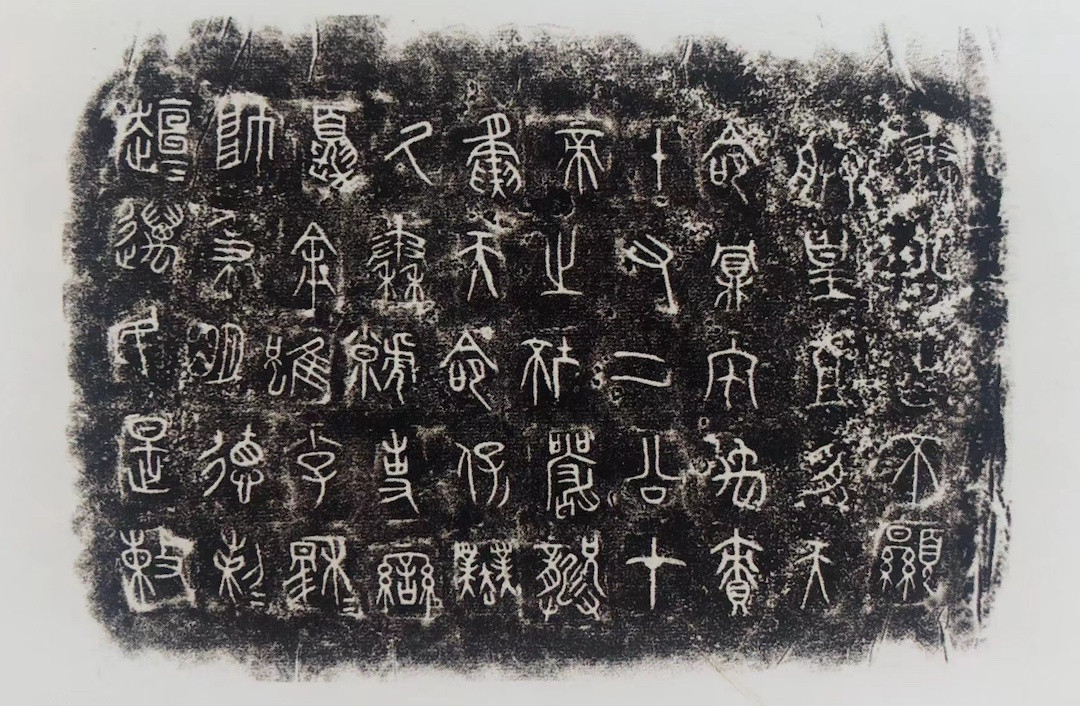 秦公曰不顯
朕皇且受天
命鼏宅禹責
十又二公才
帝之坏嚴龏
夤天命保業
厥秦虩事䜌
夏余雖小子穆=
帥秉明德剌=
趄=萬民是敕